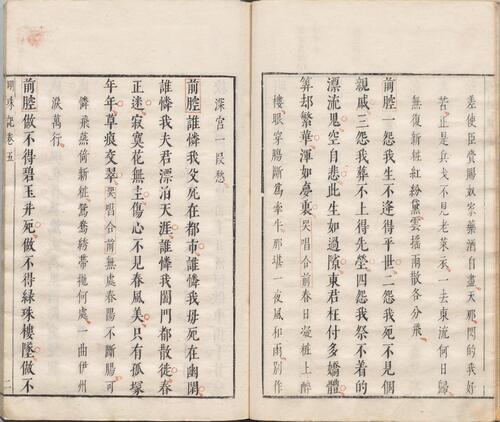 差使臣齎賜奴家藥酒自盡天那閃的我好
苦正是兵戈不見老萊衣一去東流何日歸
無復新粧紅粉黛雲揺雨散各分飛
前腔一怨我生不逢得平世二怨我死不見個
親戚三怨我葬不上得先塋四怨我祭不着的
漂流鬼空自悲此生如過隙東君枉付多嬌體
算却繁華渾如夢裏哭唱合前春日凝粧上醉
樓眼穿腸斷爲牽牛那堪一夜風和雨別作
深宮一段愁
前腔誰憐我父死在都市誰憐我母死在幽閑
誰憐我夫君漂泊天涯誰憐我闔門都散徒春
正迷寂寞花無主傷心不見春風美只有孤塚
年年草痕交翠哭唱合前無處春陽不斷腸可
憐飛燕倚新粧鴛鴦綉帶拋何處一曲伊州
淚萬行
前腔做不得碧玉井死做不得緑珠樓墜做不
明珠記卷五